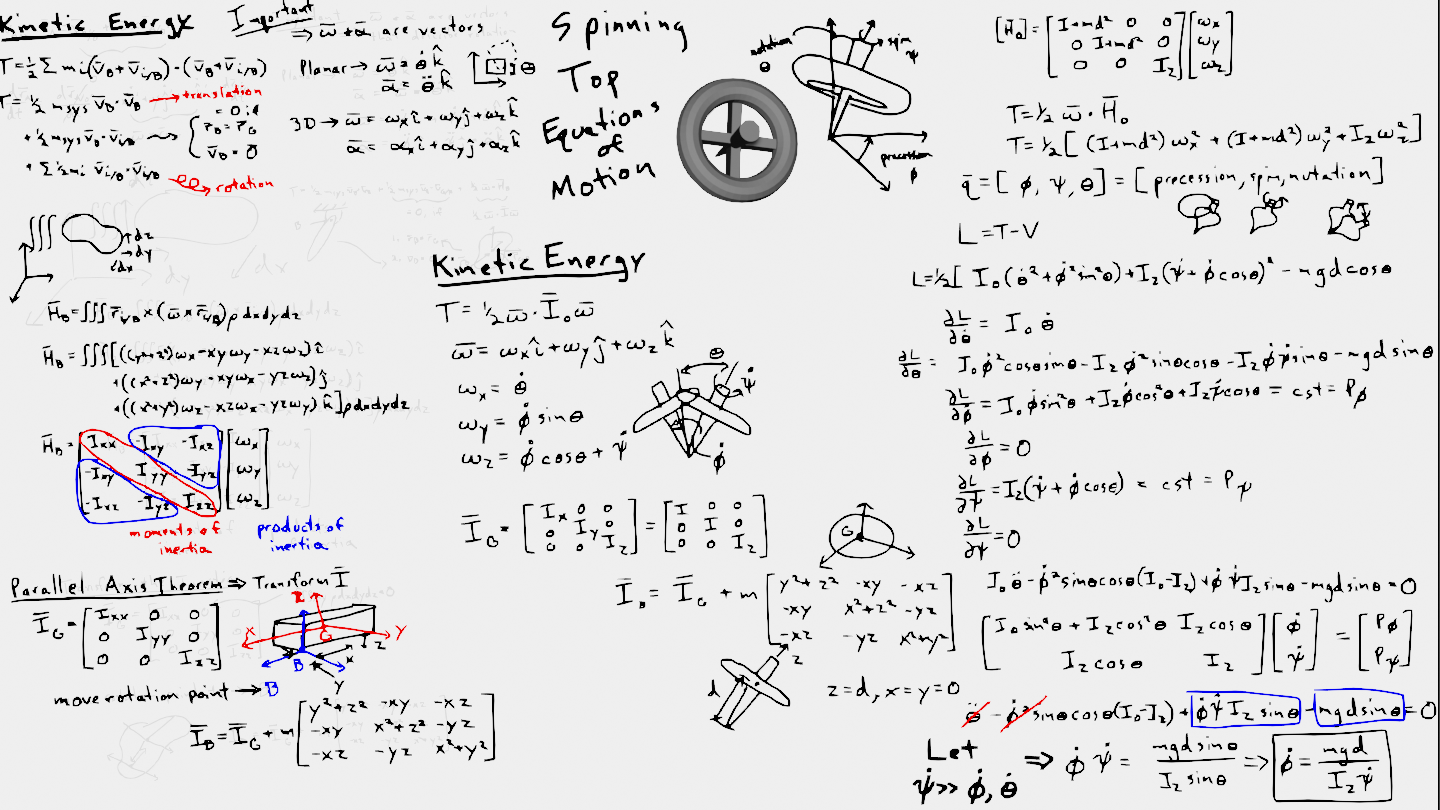 Kinetic Energy
Important
⇒ ω̄ + ᾱ are vectors
T = ½ Σ mi (v̄B + v̄i/B) · (v̄B + v̄i/B)
T = ½ msys v̄B · v̄B → translation
+ ½ msys v̄B · v̄i/B ⇝ { = 0 if
r̄B = r̄G
v̄B = 0̄
+ Σ ½ mi v̄i/B · v̄i/B → rotation
Planar → ω̄ = θ̇ k̂
ᾱ = θ̈ k̂
θ
3D → ω̄ = ωx î + ωy ĵ + ωz k̂
ᾱ = αx î + αy ĵ + αz k̂
∫∫∫
dz
dy
dx
H̄B = ∫∫∫ r̄i/B × (ω̄ × r̄i/B) ρ dxdydz
H̄B = ∫∫∫ [((y²+z²)ωx - xyωy - xzωz) î
+ ((x²+z²)ωy - xyωx - yzωz) ĵ
+ ((x²+y²)ωz - xzωx - yzωy) k̂ ] ρ dxdydz
H̄B = [ Ixx -Ixy -Ixz ] [ ωx ]
[ -Ixy Iyy -Iyz ] [ ωy ]
[ -Ixz -Iyz Izz ] [ ωz ]
moments of inertia
products of inertia
Parallel Axis Theorem ⇒ Transform Ī
ĪG = [ Ixx 0 0 ]
[ 0 Iyy 0 ]
[ 0 0 Izz ]
z
x
G
y
B
z
x
y
move rotation point → B
ĪB = ĪG + m [ y²+z² -xy -xz ]
[ -xy x²+z² -yz ]
[ -xz -yz x²+y² ]
Spinning
Top
Equations
of
Motion
nutation
θ
spin
ψ
precession
φ
Kinetic Energy
T = ½ ω̄ · Ī₀ ω̄
ω̄ = ωx î + ωy ĵ + ωz k̂
ωx = θ̇
ωy = φ̇ sinθ
ωz = φ̇ cosθ + ψ̇
θ
ψ̇
φ̇
ĪG = [ Ix 0 0 ] = [ I 0 0 ]
[ 0 Iy 0 ] [ 0 I 0 ]
[ 0 0 Iz ] [ 0 0 Iz ]
G
Ī₀ = ĪG + m [ y²+z² -xy -xz ]
[ -xy x²+z² -yz ]
[ -xz -yz x²+y² ]
z
d
z=d, x=y=0
[H̄₀] = [ I+md² 0 0 ] [ ωx ]
[ 0 I+md² 0 ] [ ωy ]
[ 0 0 Iz ] [ ωz ]
T = ½ ω̄ · H̄₀
T = ½ [ (I+md²) ωx² + (I+md²) ωy² + Iz ωz² ]
q̄ = [ φ, ψ, θ ] = [ precession, spin, nutation ]
L = T - V
L = ½ [ I₀ (θ̇² + φ̇² sin²θ) + Iz (ψ̇ + φ̇ cosθ)² - mgd cosθ
∂L/∂θ̇ = I₀ θ̇
∂L/∂θ = I₀ φ̇² cosθ sinθ - Iz φ̇² sinθ cosθ - Iz φ̇ ψ̇ sinθ - mgd sinθ
∂L/∂φ̇ = I₀ φ̇ sin²θ + Iz φ̇ cos²θ + Iz ψ̇ cosθ = cst = Pφ
∂L/∂φ = 0
∂L/∂ψ̇ = Iz (ψ̇ + φ̇ cosθ) = cst = Pψ
∂L/∂ψ = 0
I₀ θ̈ - φ̇² sinθ cosθ (I₀ - Iz) + φ̇ ψ̇ Iz sinθ - mgd sinθ = 0
[ I₀ sin²θ + Iz cos²θ Iz cosθ ] [ φ̇ ] = [ Pφ ]
[ Iz cosθ Iz ] [ ψ̇ ] [ Pψ ]
θ̈ - φ̇² sinθ cosθ (I₀ - Iz) + φ̇ ψ̇ Iz sinθ - mgd sinθ = 0
Let
ψ̇ >> φ̇, θ̇
⇒ φ̇ ψ̇ = mgd sinθ / Iz sinθ ⇒ φ̇ = mgd / Iz ψ̇